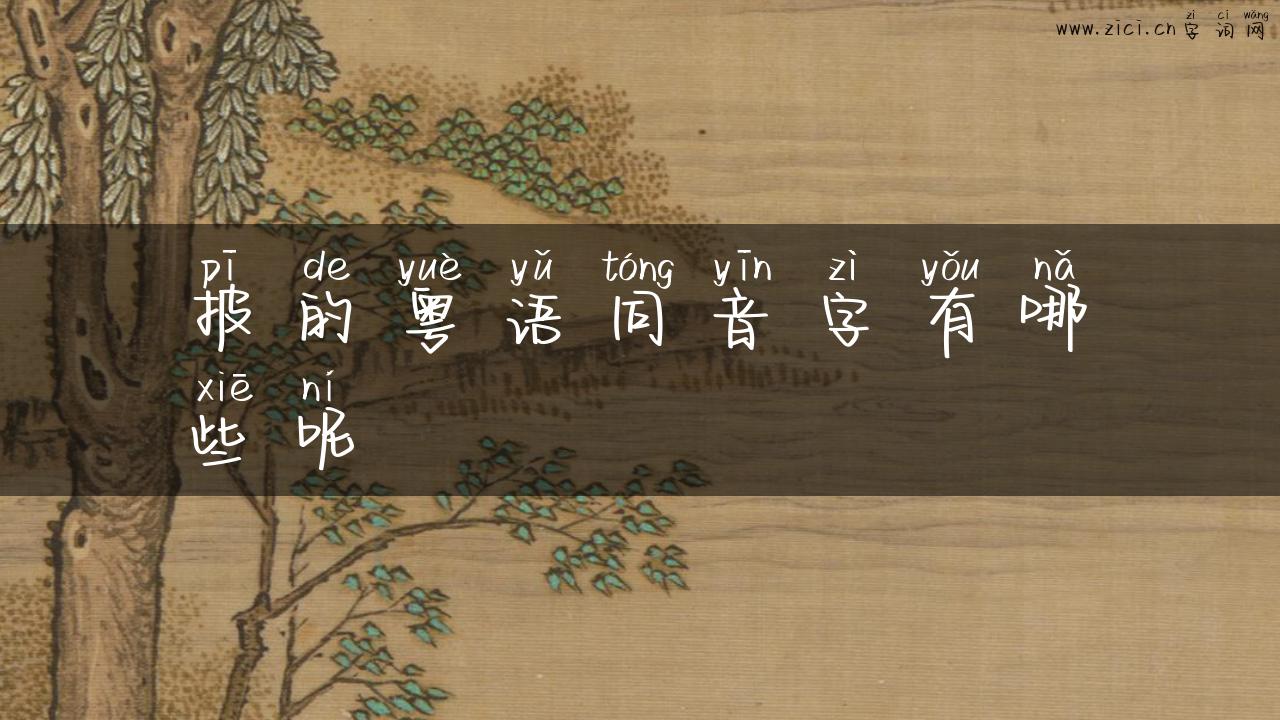 zì cí wǎng
www.zici.cn 字 词 网
pī de yuè yǔ tóng yīn zì yǒu nǎ
披 的 粤 语 同 音 字 有 哪
xiē ní
些 呢